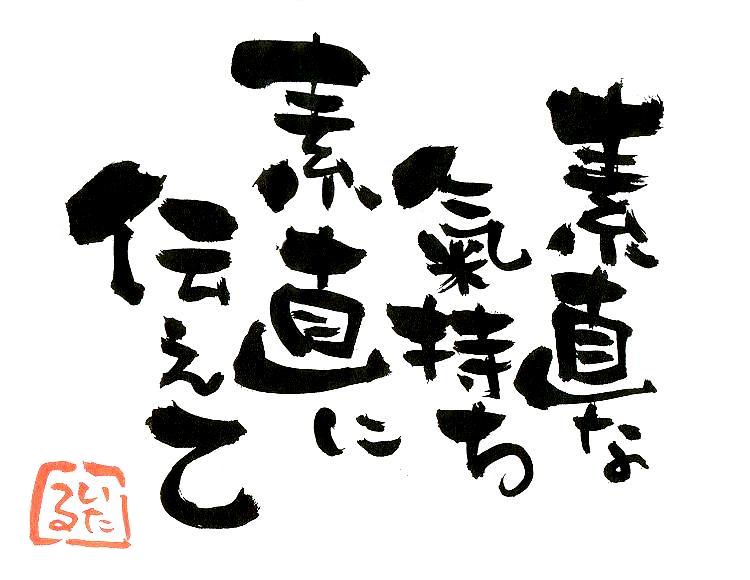 素直な
氣持ち
素直に
伝えて
いたる